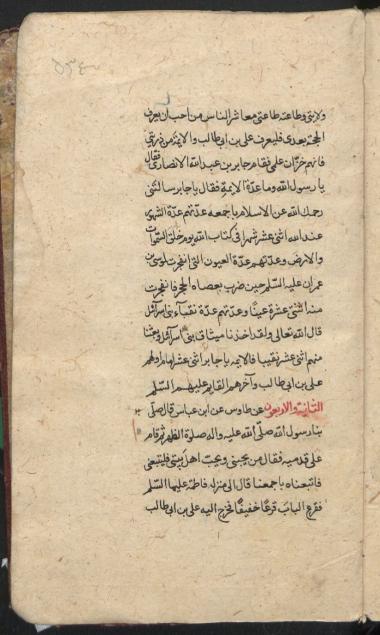 ٥٣٤
ولايتى وطاعته طاعتى معاشر الناس من احب ان يعرف
الحجة بعدى فليعرف على بن ابى طالب والائمة من ذريتى
فانهم خزّان علمى فقام جابر بن عبد الله الانصارى فقال
يا رسول الله وما عدّة الائمة فقال يا جابر سالتنى
رحمك الله عن الاسلام باجمعه عدّتهم عدّة الشهور
عند الله اثنى عشر شهرا فى كتاب الله يوم خلق السموات
والارض وعدّتهم عدّة العيون التى انفجرت لموسى بن
عمران عليه السّلم حين ضرب بعصاه الحجر فانفجرت
منه اثنتى عشرة عينًا وعدّتهم عدّة نقبآء بنى اسرآئيل
قال الله تعالى ولقد اخذنا ميثاق بنى اسرآئيل وبعثنا
منهم اثنى عشر نقيبا فالائمه يا جابر اثنى عشر اماما اولهم
على بن ابى طالب وآخرهم القايم عليهم السّلم
الثانية والاربعون عن طاوس عن ابن عباس قال صلّى
بنا رسول الله صلّى الله عليه واله صلوة الظهر ثم قام
على قدميه فقال من يحبنى ويحبّ اهل بيتى فليتبعنى
فاتبعناه باجمعنا قال الى منزله فاطمة عليها السّلم
فقرع الباب قرعًا خفيفًا فخرج اليه على بن ابى طالب